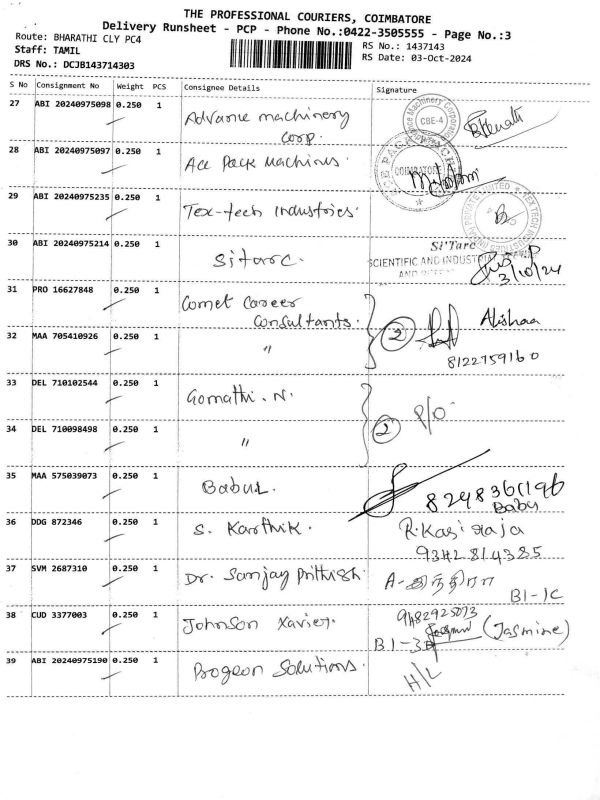 THE PROFESSIONAL COURIERS, COIMBATORE
Delivery Runsheet - PCP - Phone No.:0422-3505555 - Page No.:3
Route: BHARATHI CLY PC4
RS No.: 1437143
Staff: TAMIL
RS Date: 03-Oct-2024
DRS No.: DCJB143714303
S No Consignment No Weight PCS Consignee Details Signature
27 ABI 20240975098 0.250 1 Advance machinery
corp.
CBE-4
28 ABI 20240975097 0.250 1 Ace Pack Machines.
COIMBATORE
29 ABI 20240975235 0.250 1 Tex-tech Industries.
30 ABI 20240975214 0.250 1 Sitarc.
Si'Tarc
SCIENTIFIC AND INDUSTRIAL
3/10/24
31 PRO 16627848 0.250 1 Comet Career
Consultants.
2 Alishaa
32 MAA 705410926 0.250 1 "
8122759160
33 DEL 710102544 0.250 1 Gomathi. N.
2 P/O
34 DEL 710098498 0.250 1 "
35 MAA 575039073 0.250 1 Babu
8248361196
Babu
36 DDG 872346 0.250 1 S. Karthik. R. Kasi raja
9342814385
37 SVM 2687310 0.250 1 Dr. Sanjay Prithish. A-இந்திரா
B1-1C
38 CUD 3377003 0.250 1 Johnson Xavier. 9482925073
B1-3D (Jasmine)
39 ABI 20240975190 0.250 1 Progeon Solutions. H/L